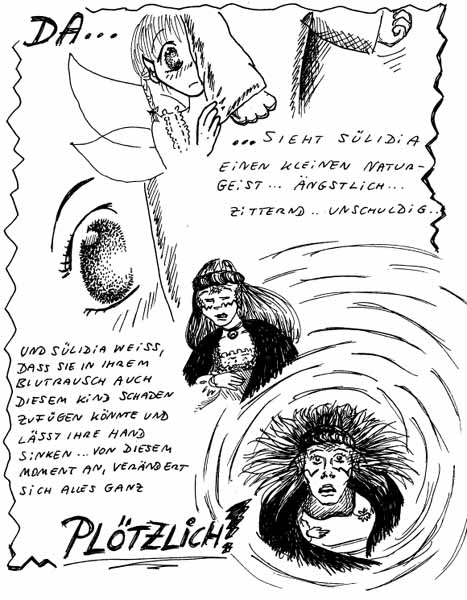 DA...
...SIEHT SÜLIDIA
EINEN KLEINEN NATUR-
GEIST... ÄNGSTLICH...
ZITTERND.. UNSCHULDIG..
UND SÜLIDIA WEISS,
DASS SIE IN IHREM
BLUTRAUSCH AUCH
DIESEM KIND SCHADEN
ZUFÜGEN KÖNNTE UND
LÄSST IHRE HAND
SINKEN... VON DIESEM
MOMENT AN, VERÄNDERT
SICH ALLES GANZ
PLÖTZLICH!